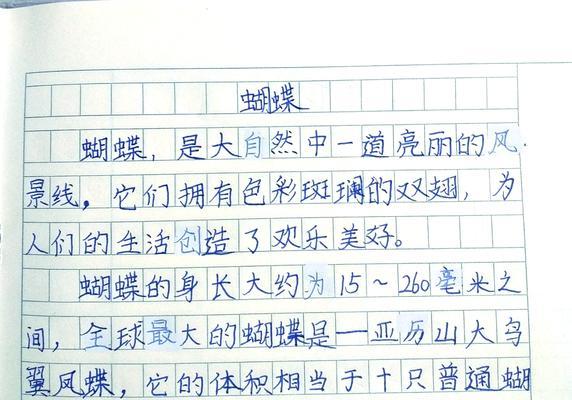 蝴蝶
蝴蝶，是大自然中一道亮丽的风
景线。它们拥有色彩斑斓的双翅，为
人们的生活创造了欢乐美好。
蝴蝶的身长大约为15~260毫米之
间，全球最大的蝴蝶是—亚历山大鸟
翼凤蝶，它的体积相当于十只普通蝴